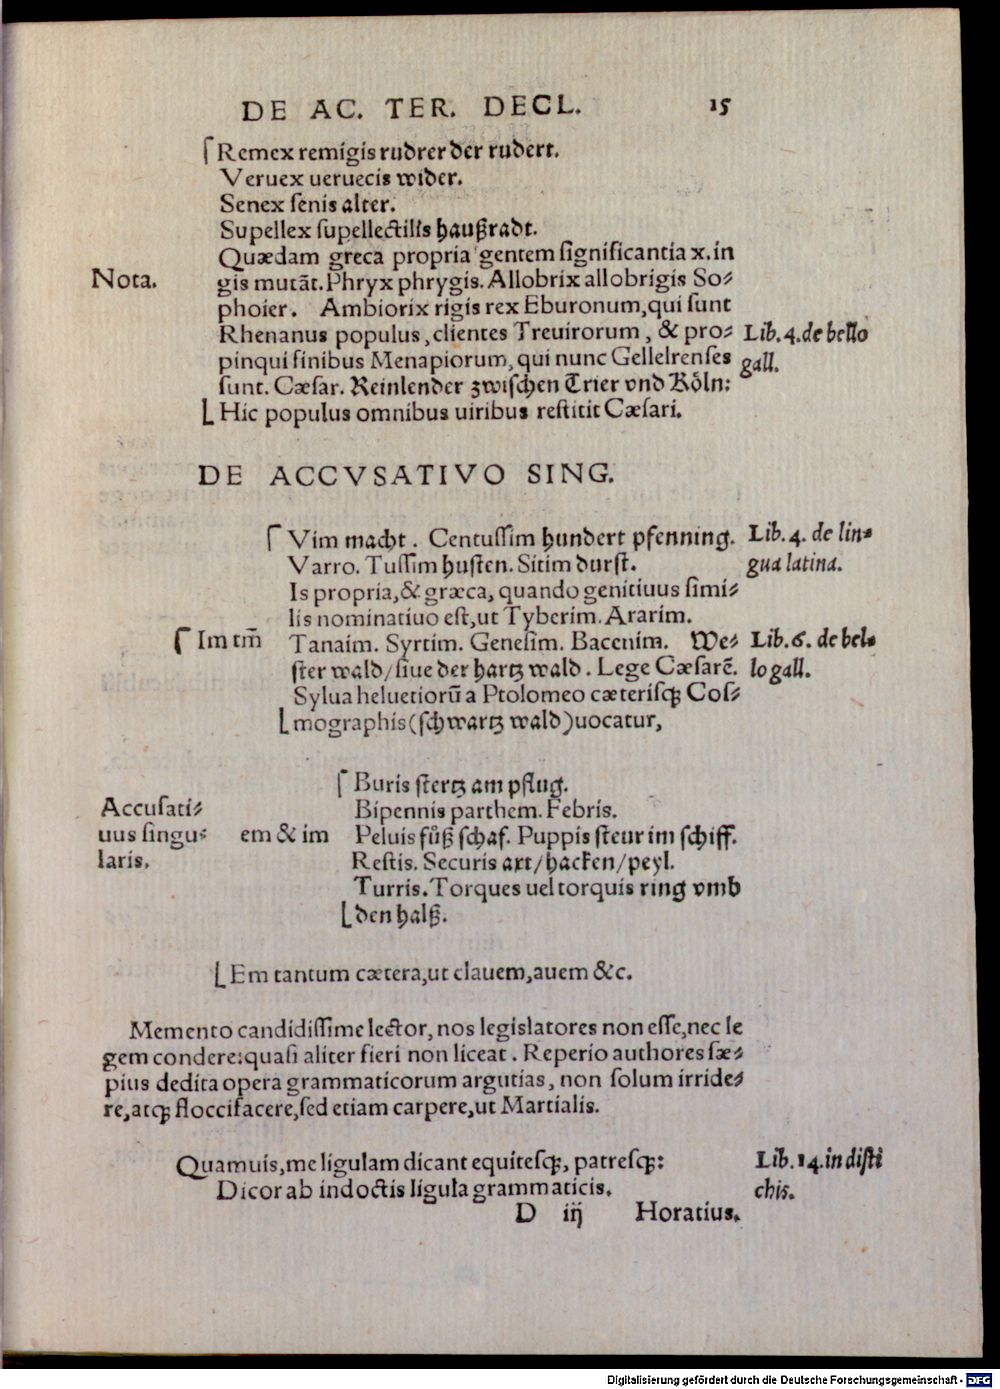 DE AC. TER. DECL. 15
Remex remigis rudrer der rudert.
Veruex ueruecis wider.
Senex ſenis alter.
Supellex ſupellectilis haußradt.
Quædam greca propria gentem ſignificantia x. in
Nota. gis mutāt. Phryx phrygis. Allobrix allobrigis So⸗
phoier. Ambiorix rigis rex Eburonum, qui ſunt
Rhenanus populus, clientes Treuirorum, & pro⸗ Lib. 4. de bello
pinqui finibus Menapiorum, qui nunc Gellelrenſes gall.
ſunt. Cæſar. Reinlender zwiſchen Trier vnd Köln:
Hic populus omnibus uiribus reſtitit Cæſari.
DE ACCVSATIVO SING.
Vim macht. Centuſſim hundert pfenning. Lib. 4. de lin⸗
Varro. Tuſſim huſten. Sitim durſt. gua latina.
Is propria, & græca, quando genitiuus ſimi⸗
lis nominatiuo eſt, ut Tyberim. Ararim.
Im tm̄ Tanaim. Syrtim. Geneſim. Bacenim. We⸗ Lib. 6. de bel⸗
ſter wald/ſiue der hartz wald. Lege Cæſarē. lo gall.
Sylua heluetiorū a Ptolomeo cæteriſq; Coſ⸗
mographis (ſchwartz wald) uocatur,
Buris ſtertz am pflug.
Accuſati⸗ Bipennis parthem. Febris.
uus ſingu⸗ em & im Peluis fůß ſchaf. Puppis ſteur im ſchiff.
laris. Reſtis. Securis axt/hacken/peyl.
Turris. Torques uel torquis ring vmb
den halß.
Em tantum cætera, ut clauem, auem &c.
Memento candidiſſime lector, nos legiſlatores non eſſe, nec le
gem condere: quaſi aliter fieri non liceat. Reperio authores ſæ⸗
pius dedita opera grammaticorum argutias, non ſolum irride⸗
re, atq; floccifacere, ſed etiam carpere, ut Martialis.
Quamuis, me ligulam dicant equiteſq;, patreſq;: Lib. 14. in diſti
Dicor ab indoctis ligula grammaticis. chis.
D iij Horatius.
Digitalisierung gefördert durch die Deutsche Forschungsgemeinschaft - DFG